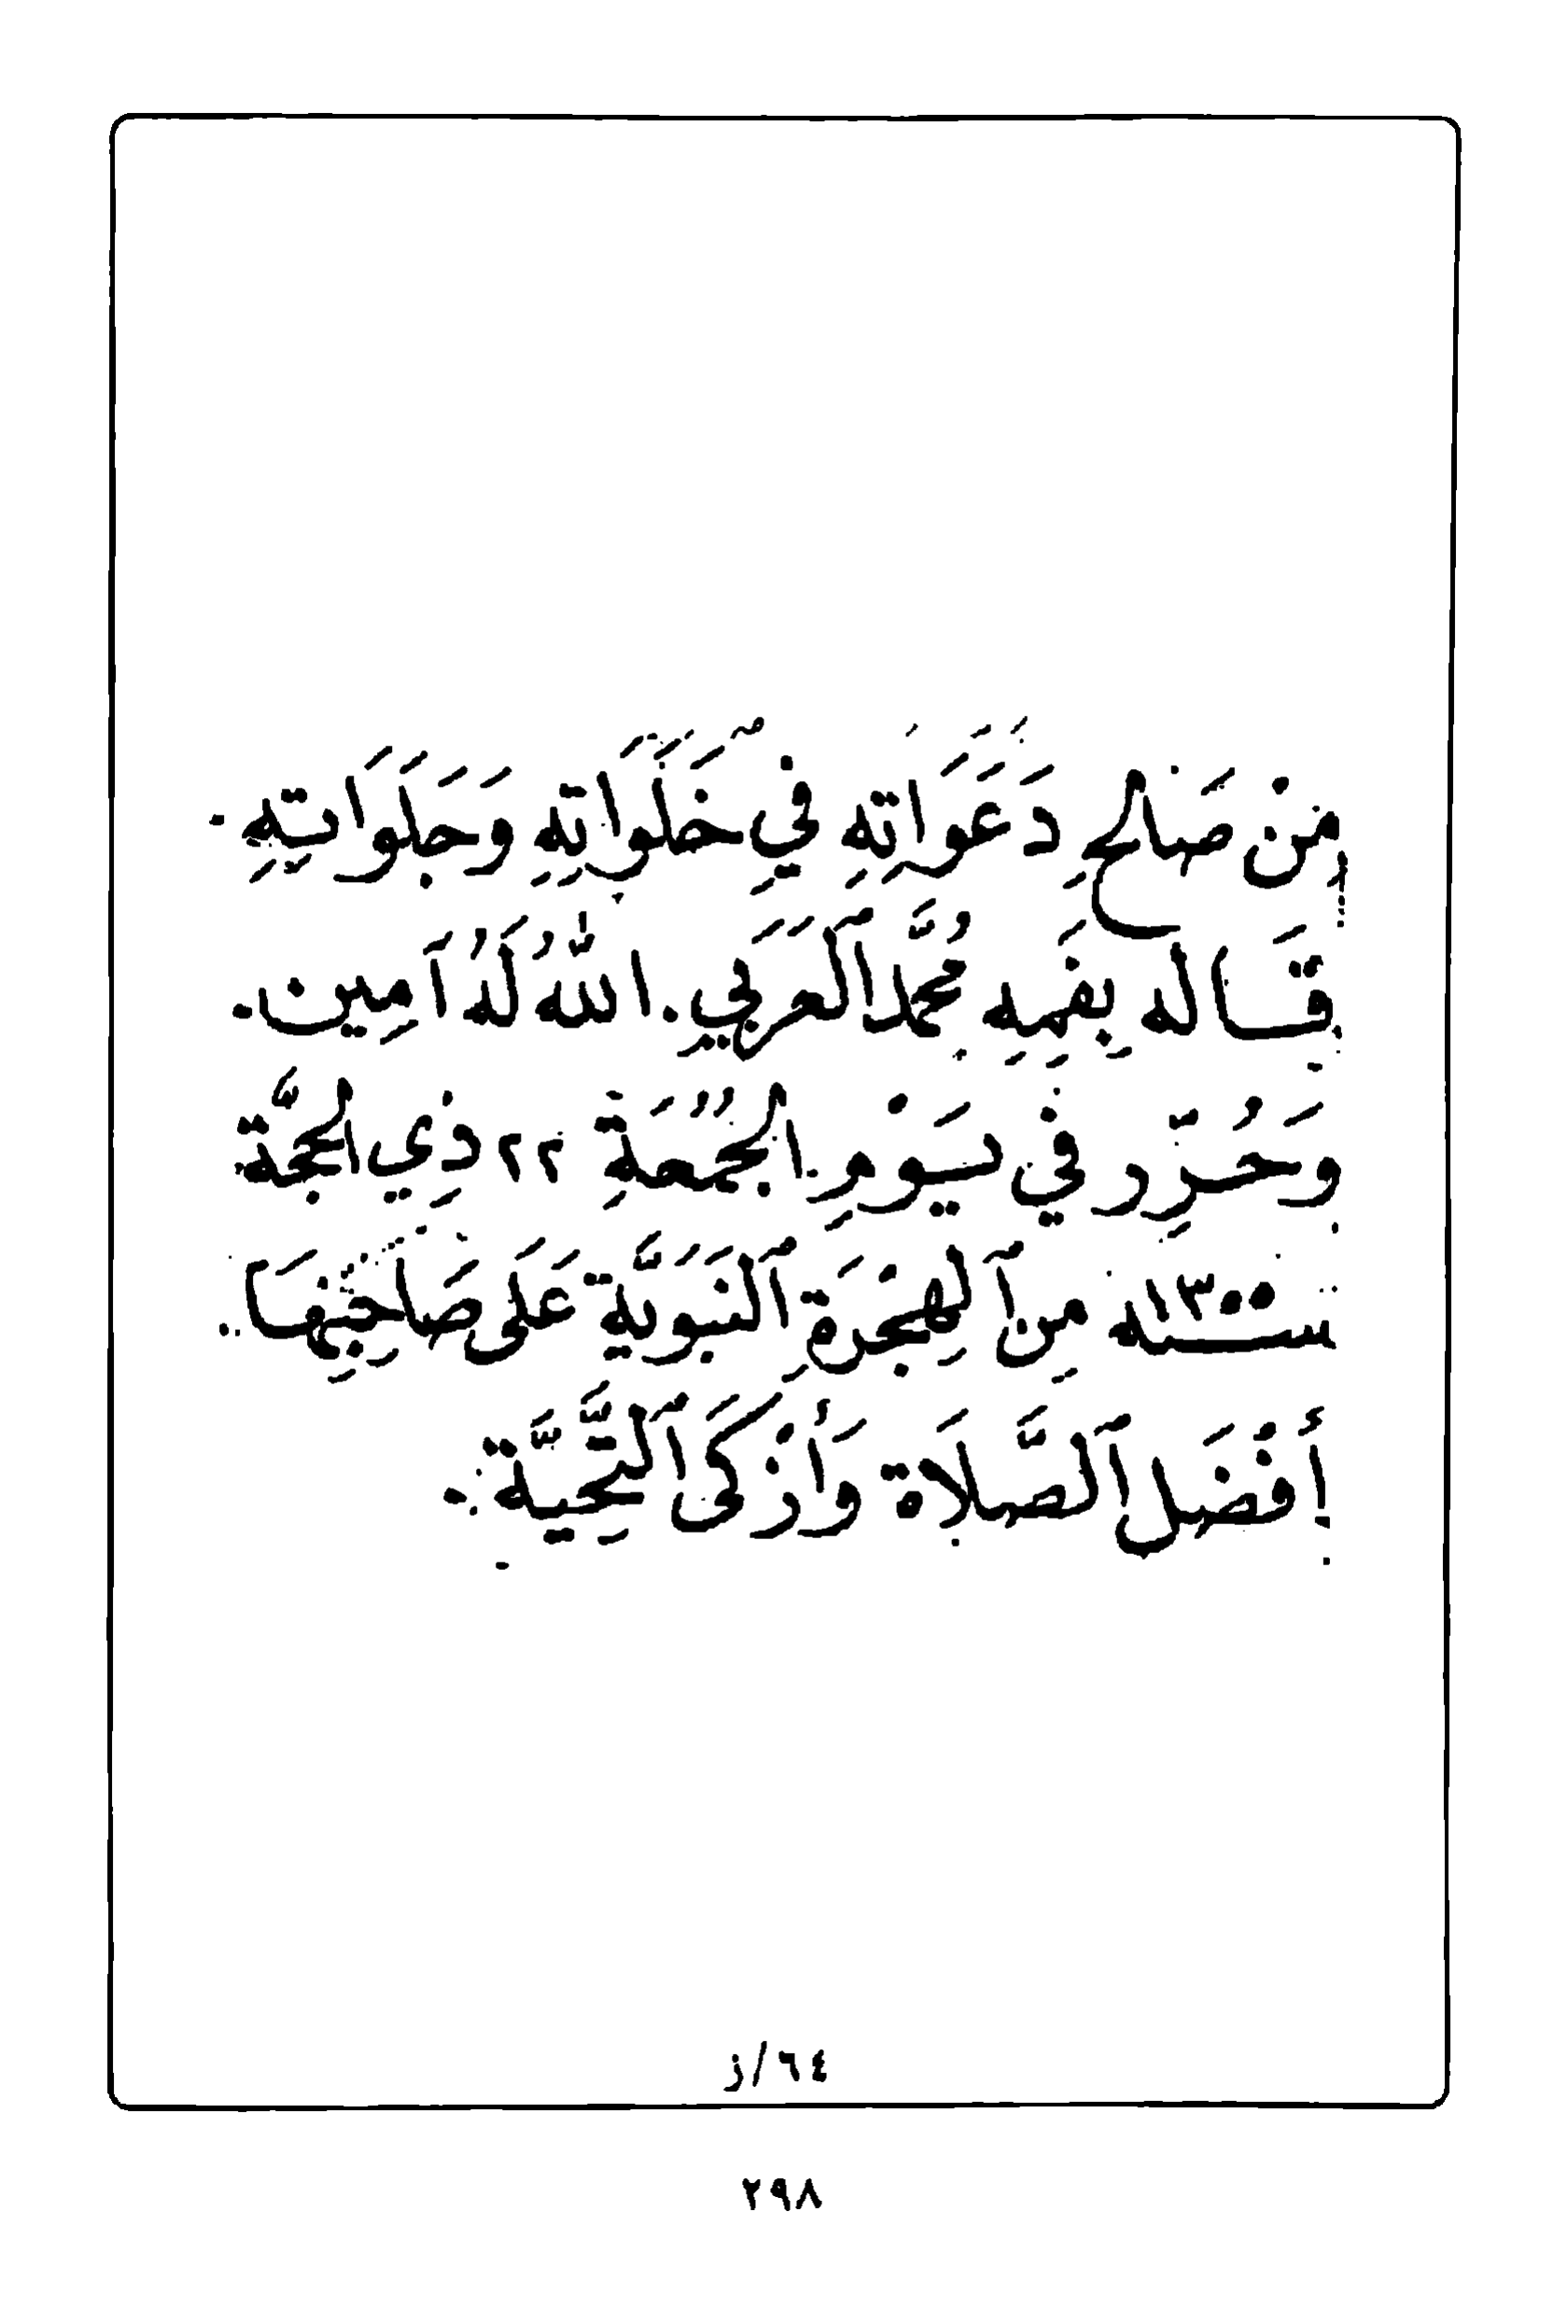 مِنْ صَالِحِ دَعَوَاتِهِ فِي خَلَوَاتِهِ وَجَلَوَاتِهِ .
قَالَه بِفَمِهِ مُحَمَّد ٱلْعَرَبِي . اللهُ لَهُ آمِين .
وَحُرِّر فِي يَوْمِ الجُمُعَةِ ٢٢ ذِي الحِجَّة
سنه ١٣٥٥ مِن ٱلهِجْرَةِ ٱلنَبَوِيَّة عَلَى صَاحِبِهَا .
أَفْضَل ٱلصَّلَاة وَأَزْكَى ٱلتَّحِيَّة .
٦٤/ز
٢٩٨